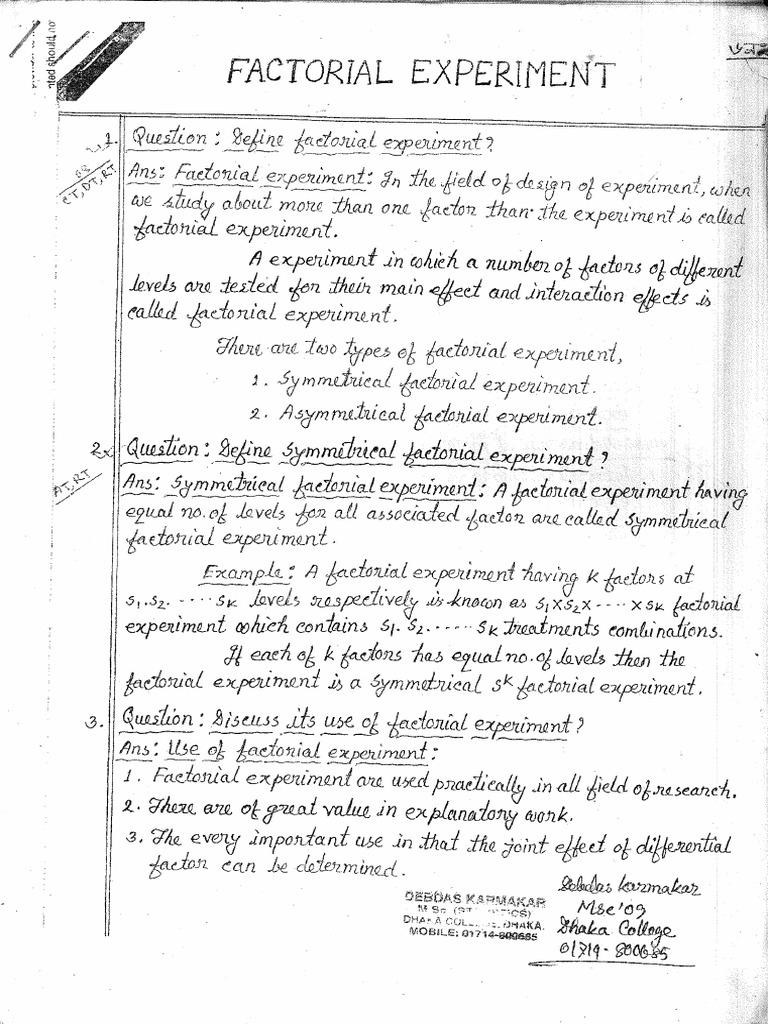 nted should no
FACTORIAL EXPERIMENT
1. Question: Define factorial experiment?
CT, DT, RT
Ans: Factorial experiment: In the field of design of experiment, when
we study about more than one factor than the experiment is called
factorial experiment.
A experiment in which a number of factors of different
levels are tested for their main effect and interaction effects is
called factorial experiment.
There are two types of factorial experiment,
1. Symmetrical factorial experiment.
2. Asymmetrical factorial experiment.
2. Question: Define Symmetrical factorial experiment?
AT, RT
Ans: Symmetrical factorial experiment: A factorial experiment having
equal no. of levels for all associated factor are called Symmetrical
factorial experiment.
Example: A factorial experiment having K factors at
s₁.s₂.....sₖ levels respectively is known as s₁×s₂×....×sₖ factorial
experiment which contains s₁.s₂......sₖ treatments combinations.
If each of k factors has equal no. of levels then the
factorial experiment is a symmetrical sᵏ factorial experiment.
3. Question: Discuss its use of factorial experiment?
Ans: Use of factorial experiment:
1. Factorial experiment are used practically in all field of research.
2. There are of great value in explanatory work.
3. The every important use in that the joint effect of differential
factor can be determined.
DEBDAS KARMAKAR
M Sc
DHAKA DHAKA.
MOBILE: 01714-800685
Debdas Karmakar
MSc'09
Dhaka College
01714-800685